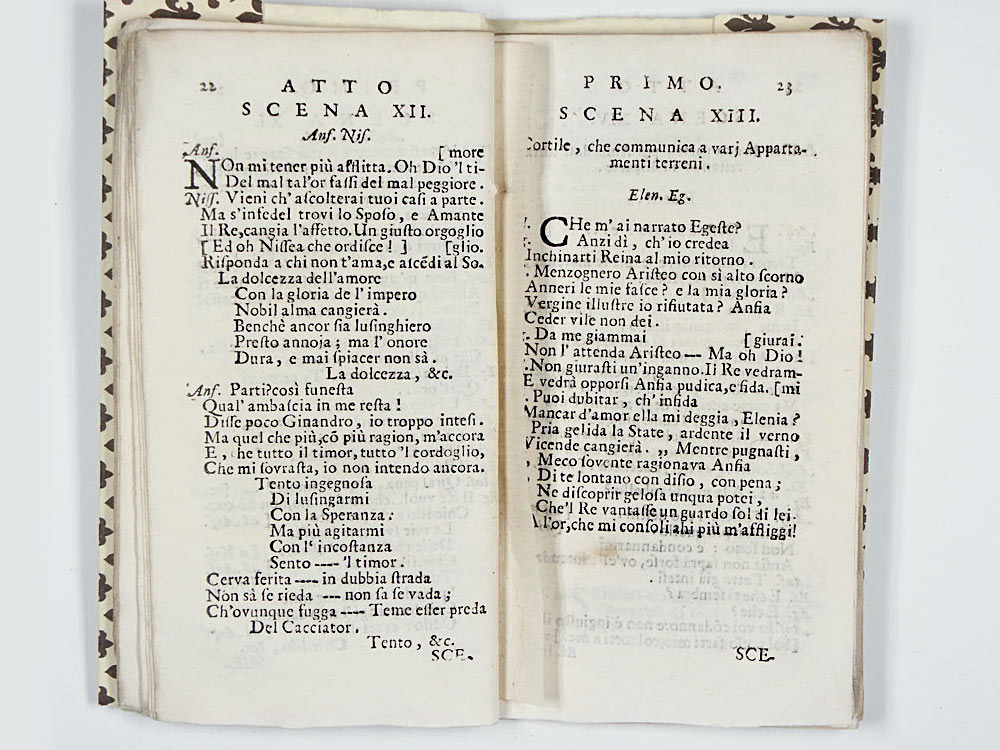 22 ATTO
SCENA XII.
Anf. Nif.
Anf. [more
NOn mi tener più afflitta. Oh Dio 'l ti-
Del mal tal'or fassi del mal peggiore.
Niss. Vieni ch' ascolterai tuoi casi a parte.
Ma s'infedel trovi lo Sposo, e Amante
Il Re,cangia l'affetto. Un giusto orgoglio
[Ed oh Nissea che ordisce! ] [glio.
Risponda a chi non t'ama,e ascēdi al So-
La dolcezza dell'amore
Con la gloria de l'impero
Nobil alma cangierà.
Benchè ancor sia lusinghiero
Presto annoja; ma l' onore
Dura, e mai spiacer non sà.
La dolcezza, &c.
Anf. Parti?così funesta
Qual' ambascia in me resta!
Disse poco Ginandro, io troppo intesi.
Ma quel che più,cō più ragion, m'accora
E, che tutto il timor,tutto 'l cordoglio,
Che mi sovrasta, io non intendo ancora.
Tento ingegnosa
Di lusingarmi
Con la Speranza:
Ma più agitarmi
Con l' incostanza
Sento ---- 'l timor.
Cerva ferita ---- in dubbia strada
Non sà se rieda ---- non sa se vada;
Ch'ovunque fugga ---- Teme esser preda
Del Cacciator.
Tento, &c.
SCE-
PRIMO. 23
SCENA XIII.
Cortile, che communica a varj Apparta-
menti terreni.
Elen. Eg.
CHe m' ai narrato Egeste?
Anzi dì, ch' io credea
Inchinarti Reina al mio ritorno.
Menzognero Aristeo con sì alto scorno
Anneri le mie fasce? e la mia gloria?
Vergine illustre io rifiutata? Anfia
Ceder vile non dei.
Da me giammai [giurai.
Non l' attenda Aristeo -- Ma oh Dio!
Non giurasti un'inganno. Il Re vedram-
E vedrà opporsi Anfia pudica,e fida. [mi
Puoi dubitar, ch' infida
Mancar d'amor ella mi deggia, Elenia?
Pria gelida la State, ardente il verno
Vicende cangierà. ,, Mentre pugnasti,
, Meco sovente ragionava Anfia
, Di te lontano con disio, con pena;
, Ne discoprir gelosa unqua potei,
, Che'l Re vantasse un guardo sol di lei.
Al'or,che mi consoli ahi più m'affliggi!
SCE-